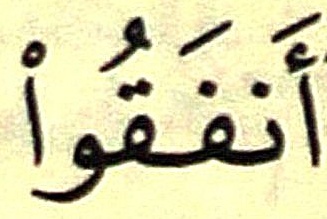 أَنفَقُواْ